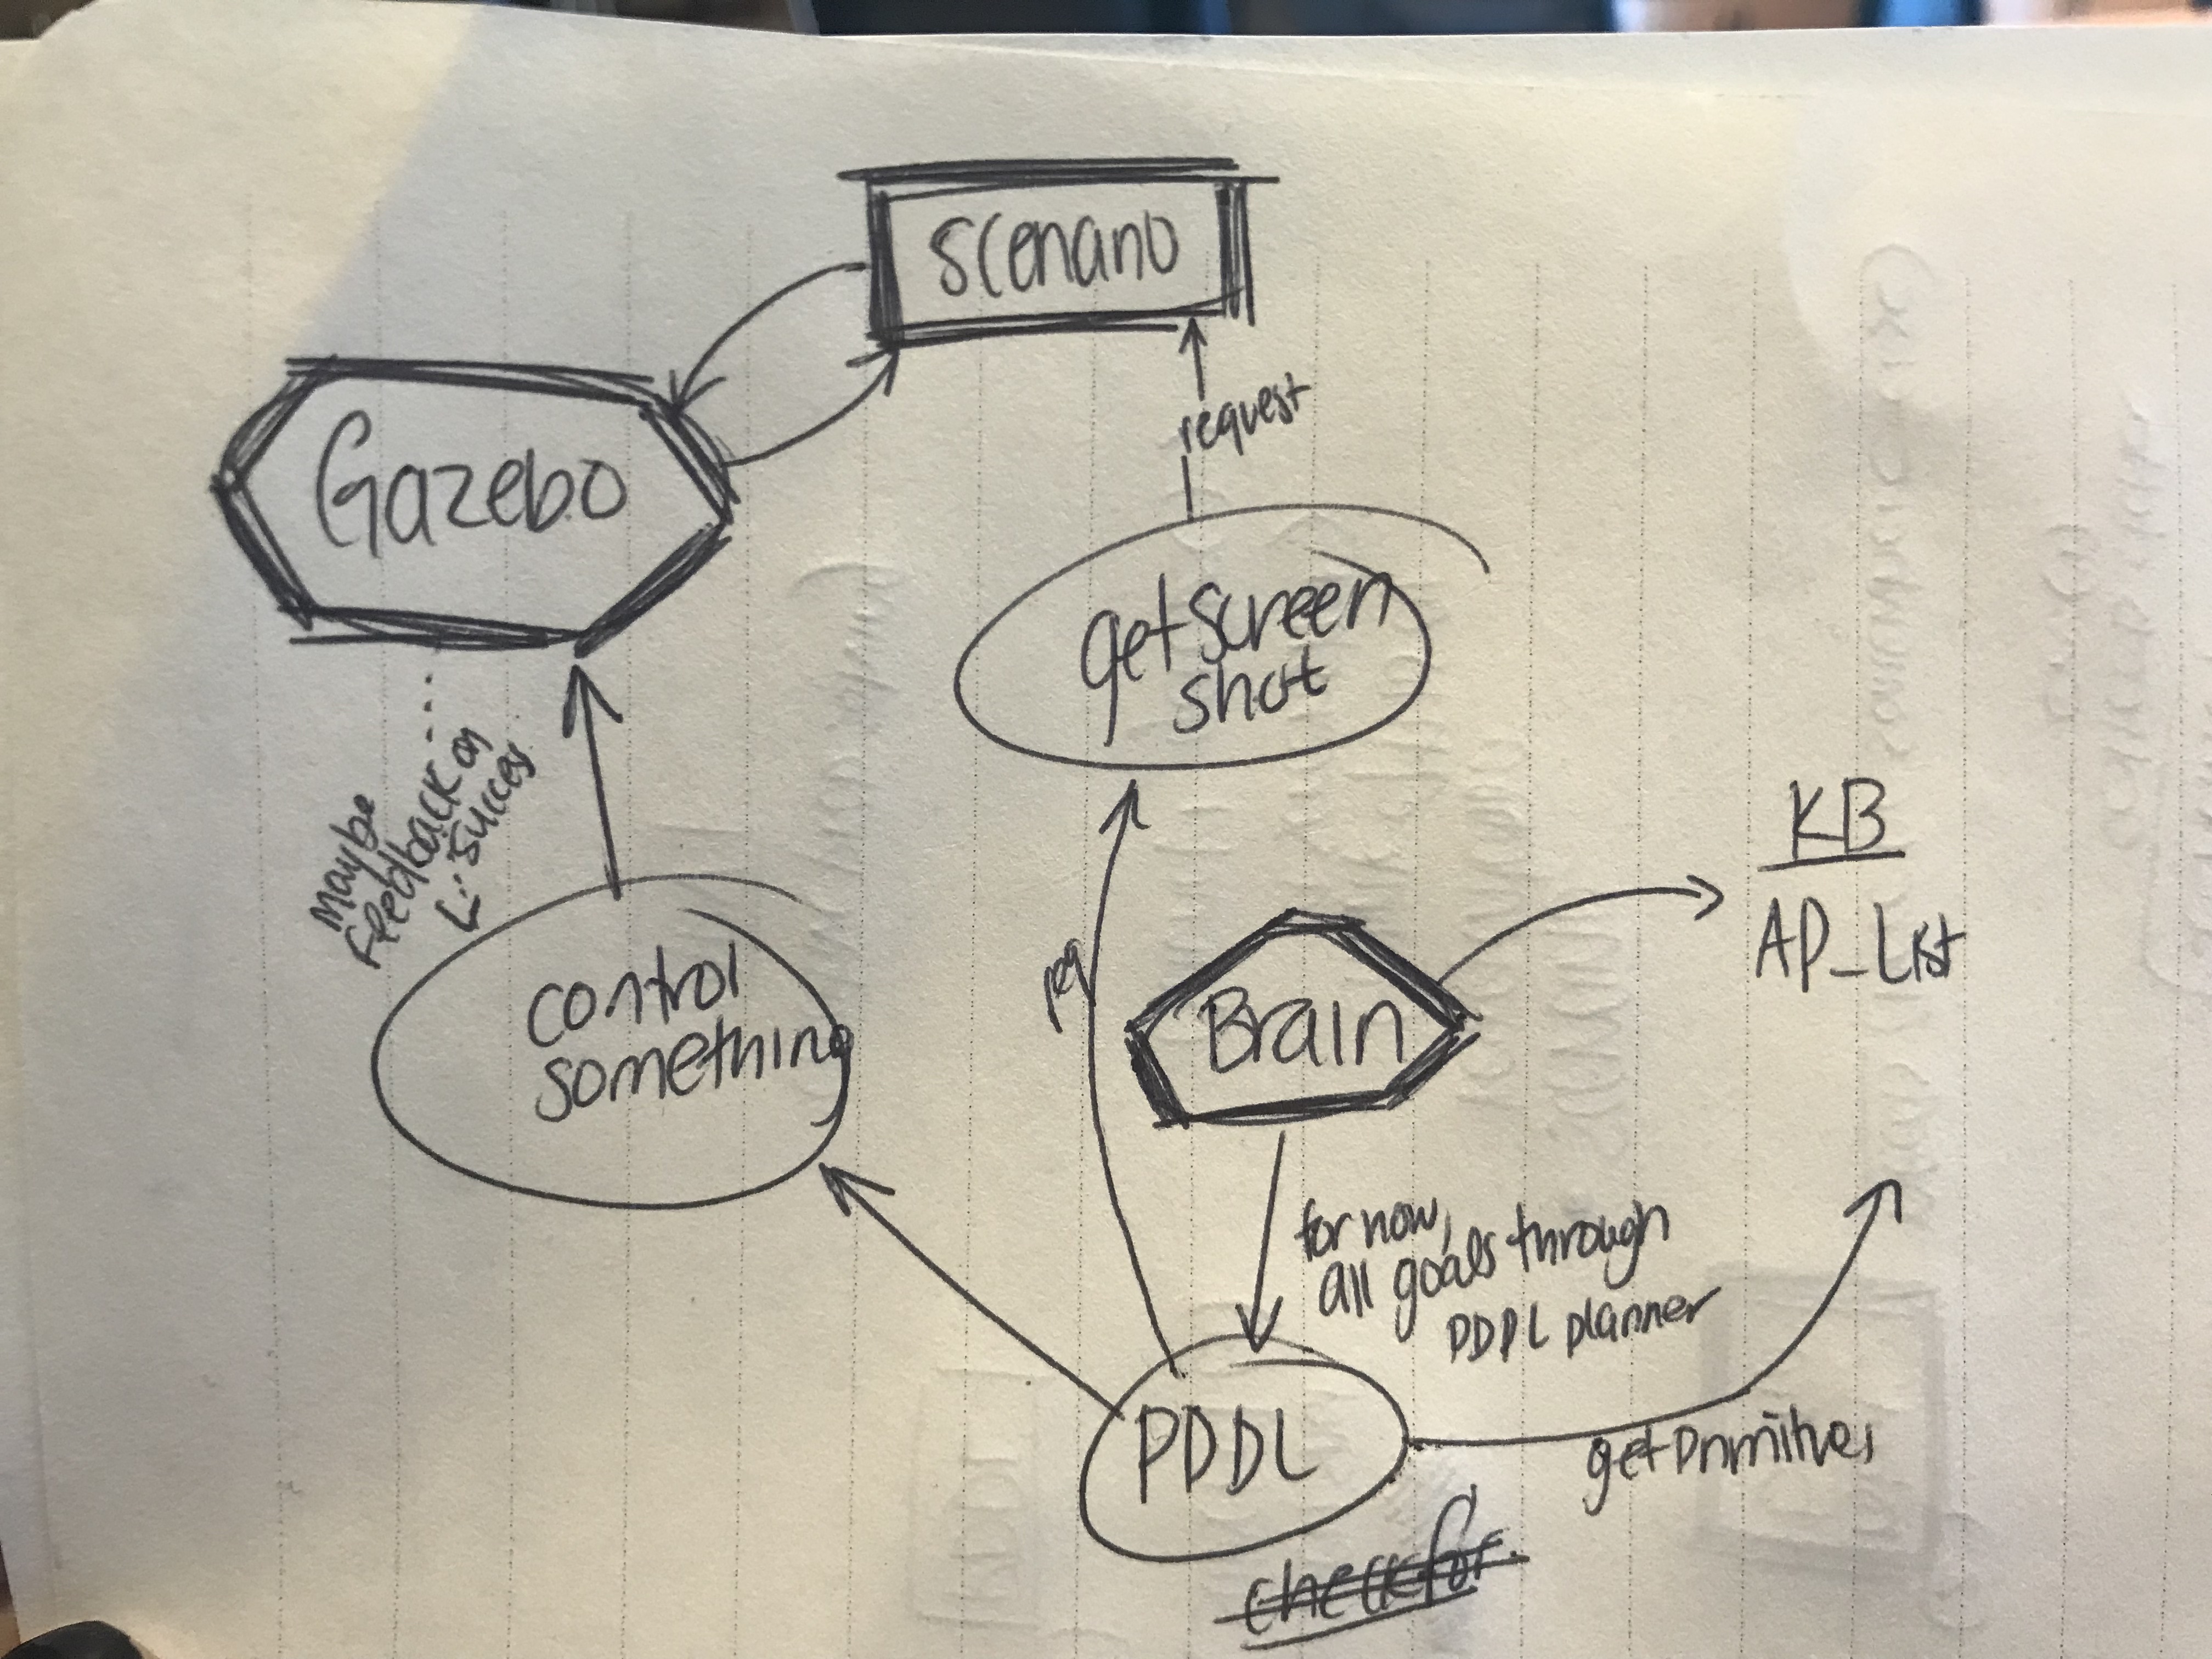 scenario
Gazebo
request
getscreen
shot
Maybe
feedback on
succes
KB
AP_List
control
something
req
Brain
for now,
all goals through
PDDL planner
PDDL
getPrimitives
check for